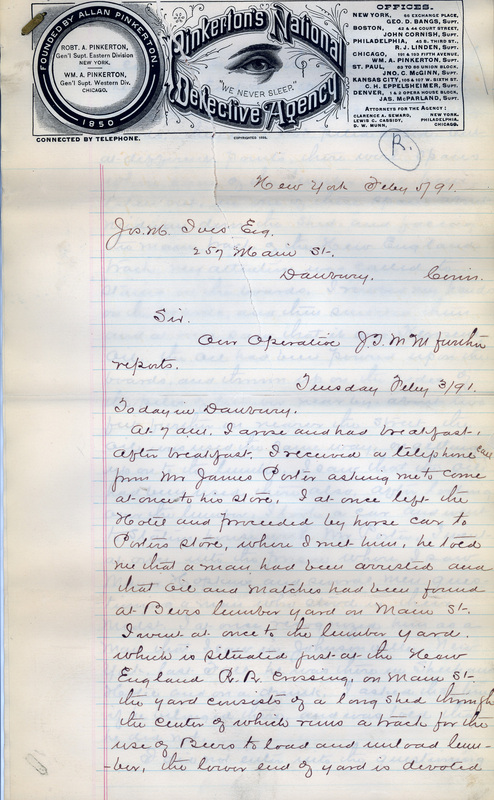 FOUNDED BY ALLAN PINKERTON.
1850
ROBT. A. PINKERTON,
Gen'l Supt. Eastern Division
NEW YORK.
WM. A. PINKERTON,
Gen'l Supt. Western Div.
CHICAGO.
CONNECTED BY TELEPHONE.
Pinkerton's National
"WE NEVER SLEEP."
Detective Agency
OFFICES.
NEW YORK, 66 EXCHANGE PLACE,
GEO. D. BANGS, SUPT.
BOSTON, 42 & 44 COURT STREET,
JOHN CORNISH, SUPT.
PHILADELPHIA, 45 S. THIRD ST.,
R. J. LINDEN, SUPT.
CHICAGO, 191 & 193 FIFTH AVENUE,
WM. A. PINKERTON, SUPT.
ST. PAUL, 83 TO 86 UNION BLOCK,
JNO. C. McGINN, SUPT.
KANSAS CITY, 105 & 107 W. SIXTH ST.
C. H. EPPELSHEIMER, SUPT.
DENVER, 1 & 2 OPERA HOUSE BLOCK,
JAS. McPARLAND, SUPT.
ATTORNEYS FOR THE AGENCY:
CLARENCE A. SEWARD, NEW YORK.
LEWIS C. CASSIDY, PHILADELPHIA.
D. W. MUNN, CHICAGO.
R.
New York Feby 5/91.
Jos. M. Ives Esq.
257 Main St.
Danbury. Conn.
Sir.
Our Operative J.T. McM further
reports.
Tuesday Feby 3/91.
Today in Danbury.
At 7 a.m. I arose and had breakfast.
After breakfast. I received a telephone call
from Mr James Porter asking me to come
at once to his store, I at once left the
Hotel and proceeded by horse car to
Porters store, where I met him, he told
me that a man had been arrested and
that oil and matches had been found
at Beirs lumber yard on Main St.
I went at once to the lumber yard.
which is situated just at the New
England R.R. Crossing, on Main St.
the yard consists of a long shed through
the center of which runs a track for the
use of Beers to load and unload lum-
-ber, the lower end of yard is devoted